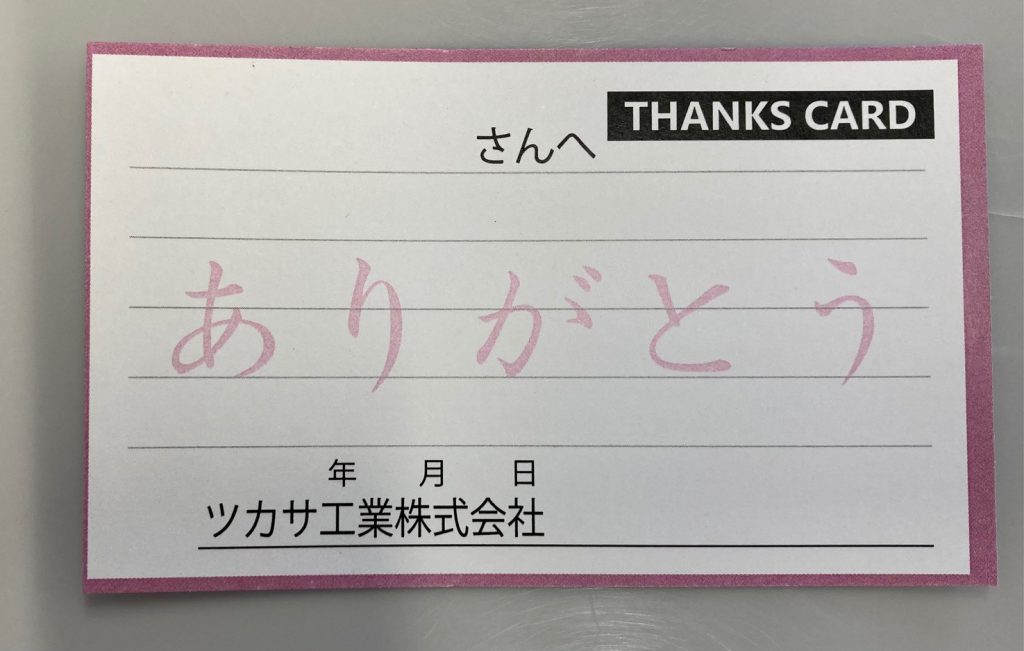 THANKS CARD
さんへ
ありがとう
年 月 日
ツカサ工業株式会社